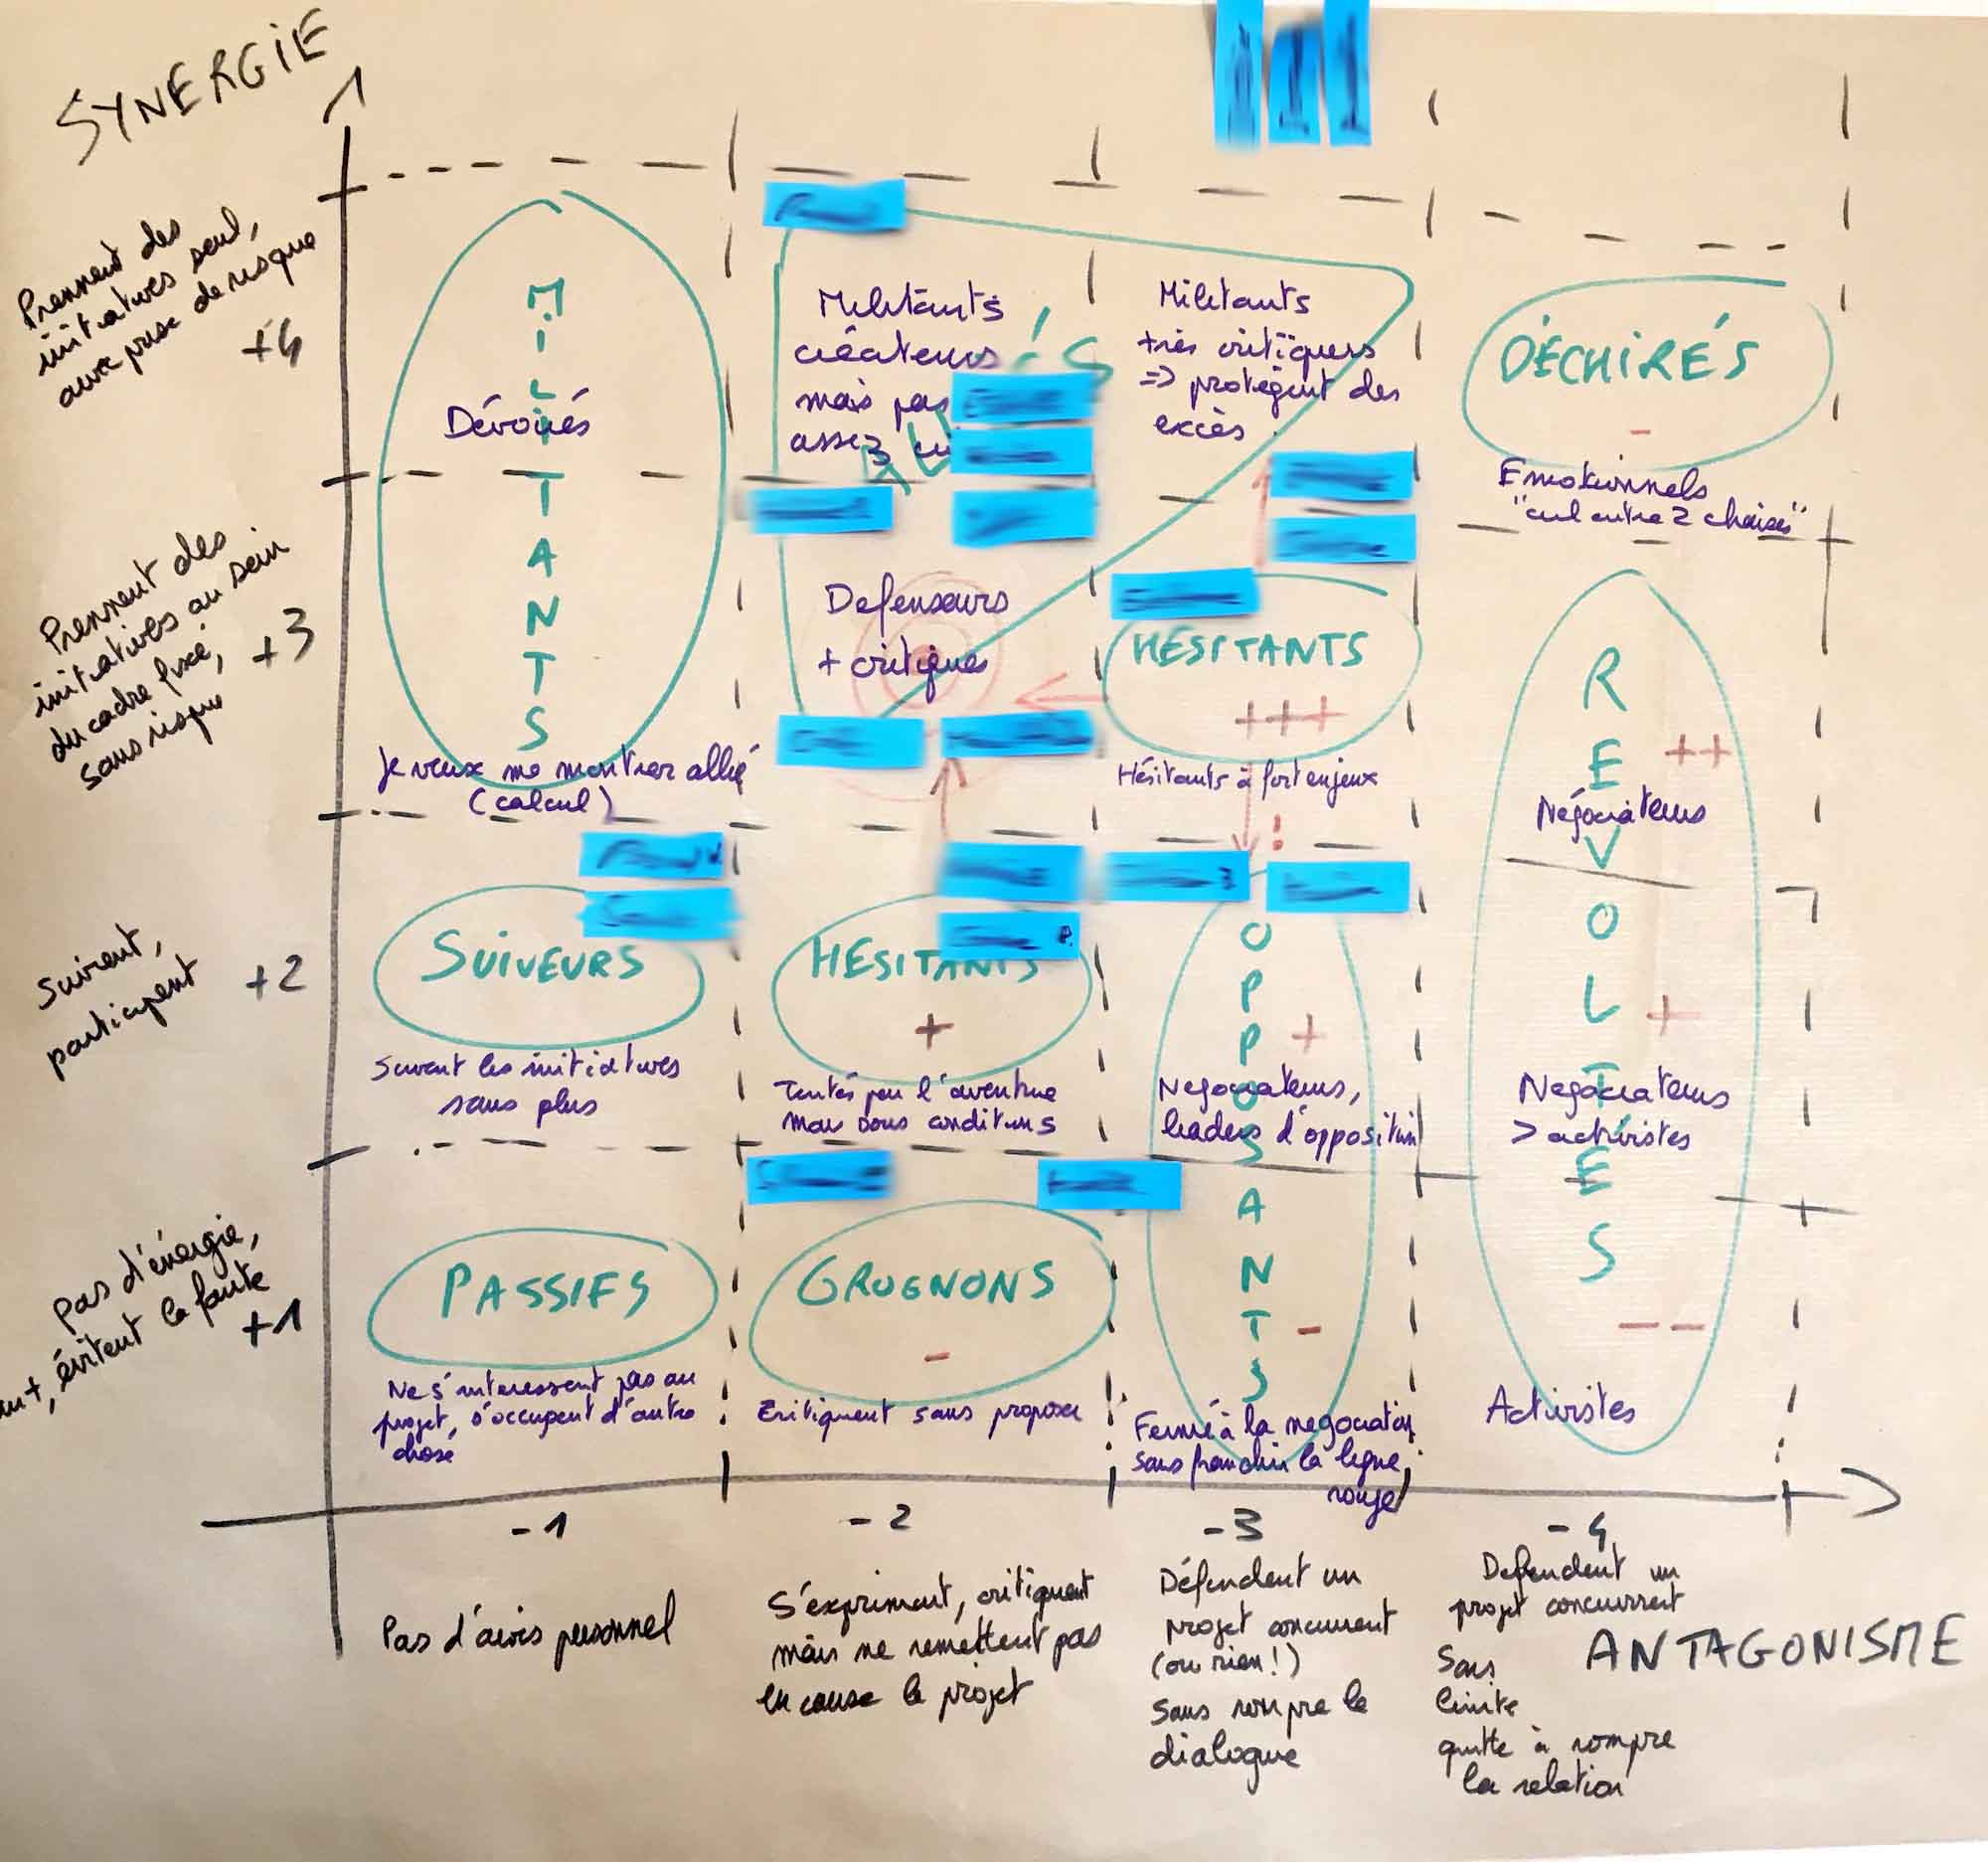 SYNERGIE
Prennent des
initiatives seul,
avec prise de risque
+4
MILITANTS
Dévoués
Militants
créateurs
mais pas
assez
Militants
très critiques
=> protègent des
excès
DÉCHIRÉS
-
Emotionnels
"cul entre 2 chaises"
Prennent des
initiatives au sein
du cadre fixé,
sans risque
+3
Je veux me montrer allié
(calcul)
Defenseurs
+ critiques
HÉSITANTS
+++
Hésitants à fort enjeux
!
REVOLTES
++
Négociateurs
Suivent,
participent
+2
SUIVEURS
Suivent les initiatives
sans plus
HESITANTS
+
Tentés par l'aventure
mais sous conditions
OPPOSANTS
+
Negociateurs,
leaders d'opposition
+
Negociateurs
> activistes
pas d'énergie,
évitent la faute
+1
PASSIFS
Ne s'interessent pas au
projet, s'occupent d'autre
chose
GROGNONS
-
Critiquent sans proposer
-
Fermé à la negociation
sans franchir la ligne
rouge
--
Activistes
-1
-2
-3
-4
Pas d'avis personnel
S'expriment, critiquent
mais ne remettent pas
en cause le projet
Défendent un
projet concurrent
(ou rien!)
Sans rompre le
dialogue
Defendent un
projet concurrent
Sans
limite
quitte à rompre
la relation
ANTAGONISME